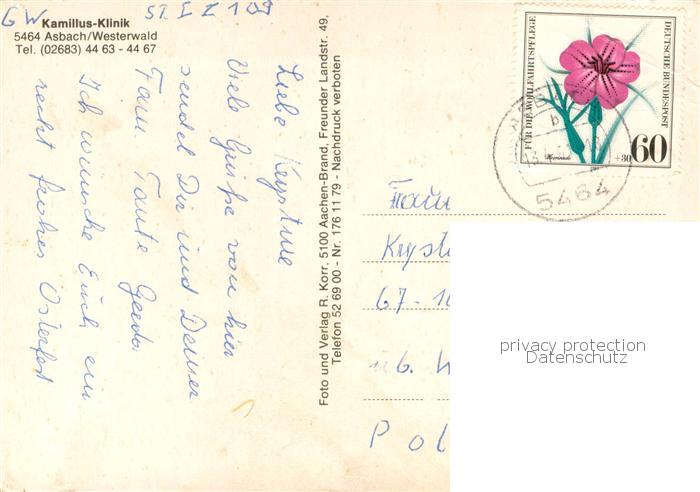 GW
Kamillus-Klinik
5464 Asbach/Westerwald
Tel. (02683) 44 63 - 44 67
Liebe Krystine
Viele Grüße von hier
sendet Dir und Deiner
Fam Tante Gerda.
Ich wünsche Euch ein
recht frohes Osterfest
Foto und Verlag R. Korr. 5100 Aachen-Brand, Freunder Landstr. 49,
Telefon 52 69 00 - Nr. 176 11 79 - Nachdruck verboten
FÜR DIE WOHLFAHRTSPFLEGE
DEUTSCHE BUNDESPOST
60
+30
5464
b
Frau
Kryst
67-10
P o l
privacy protection
Datenschutz